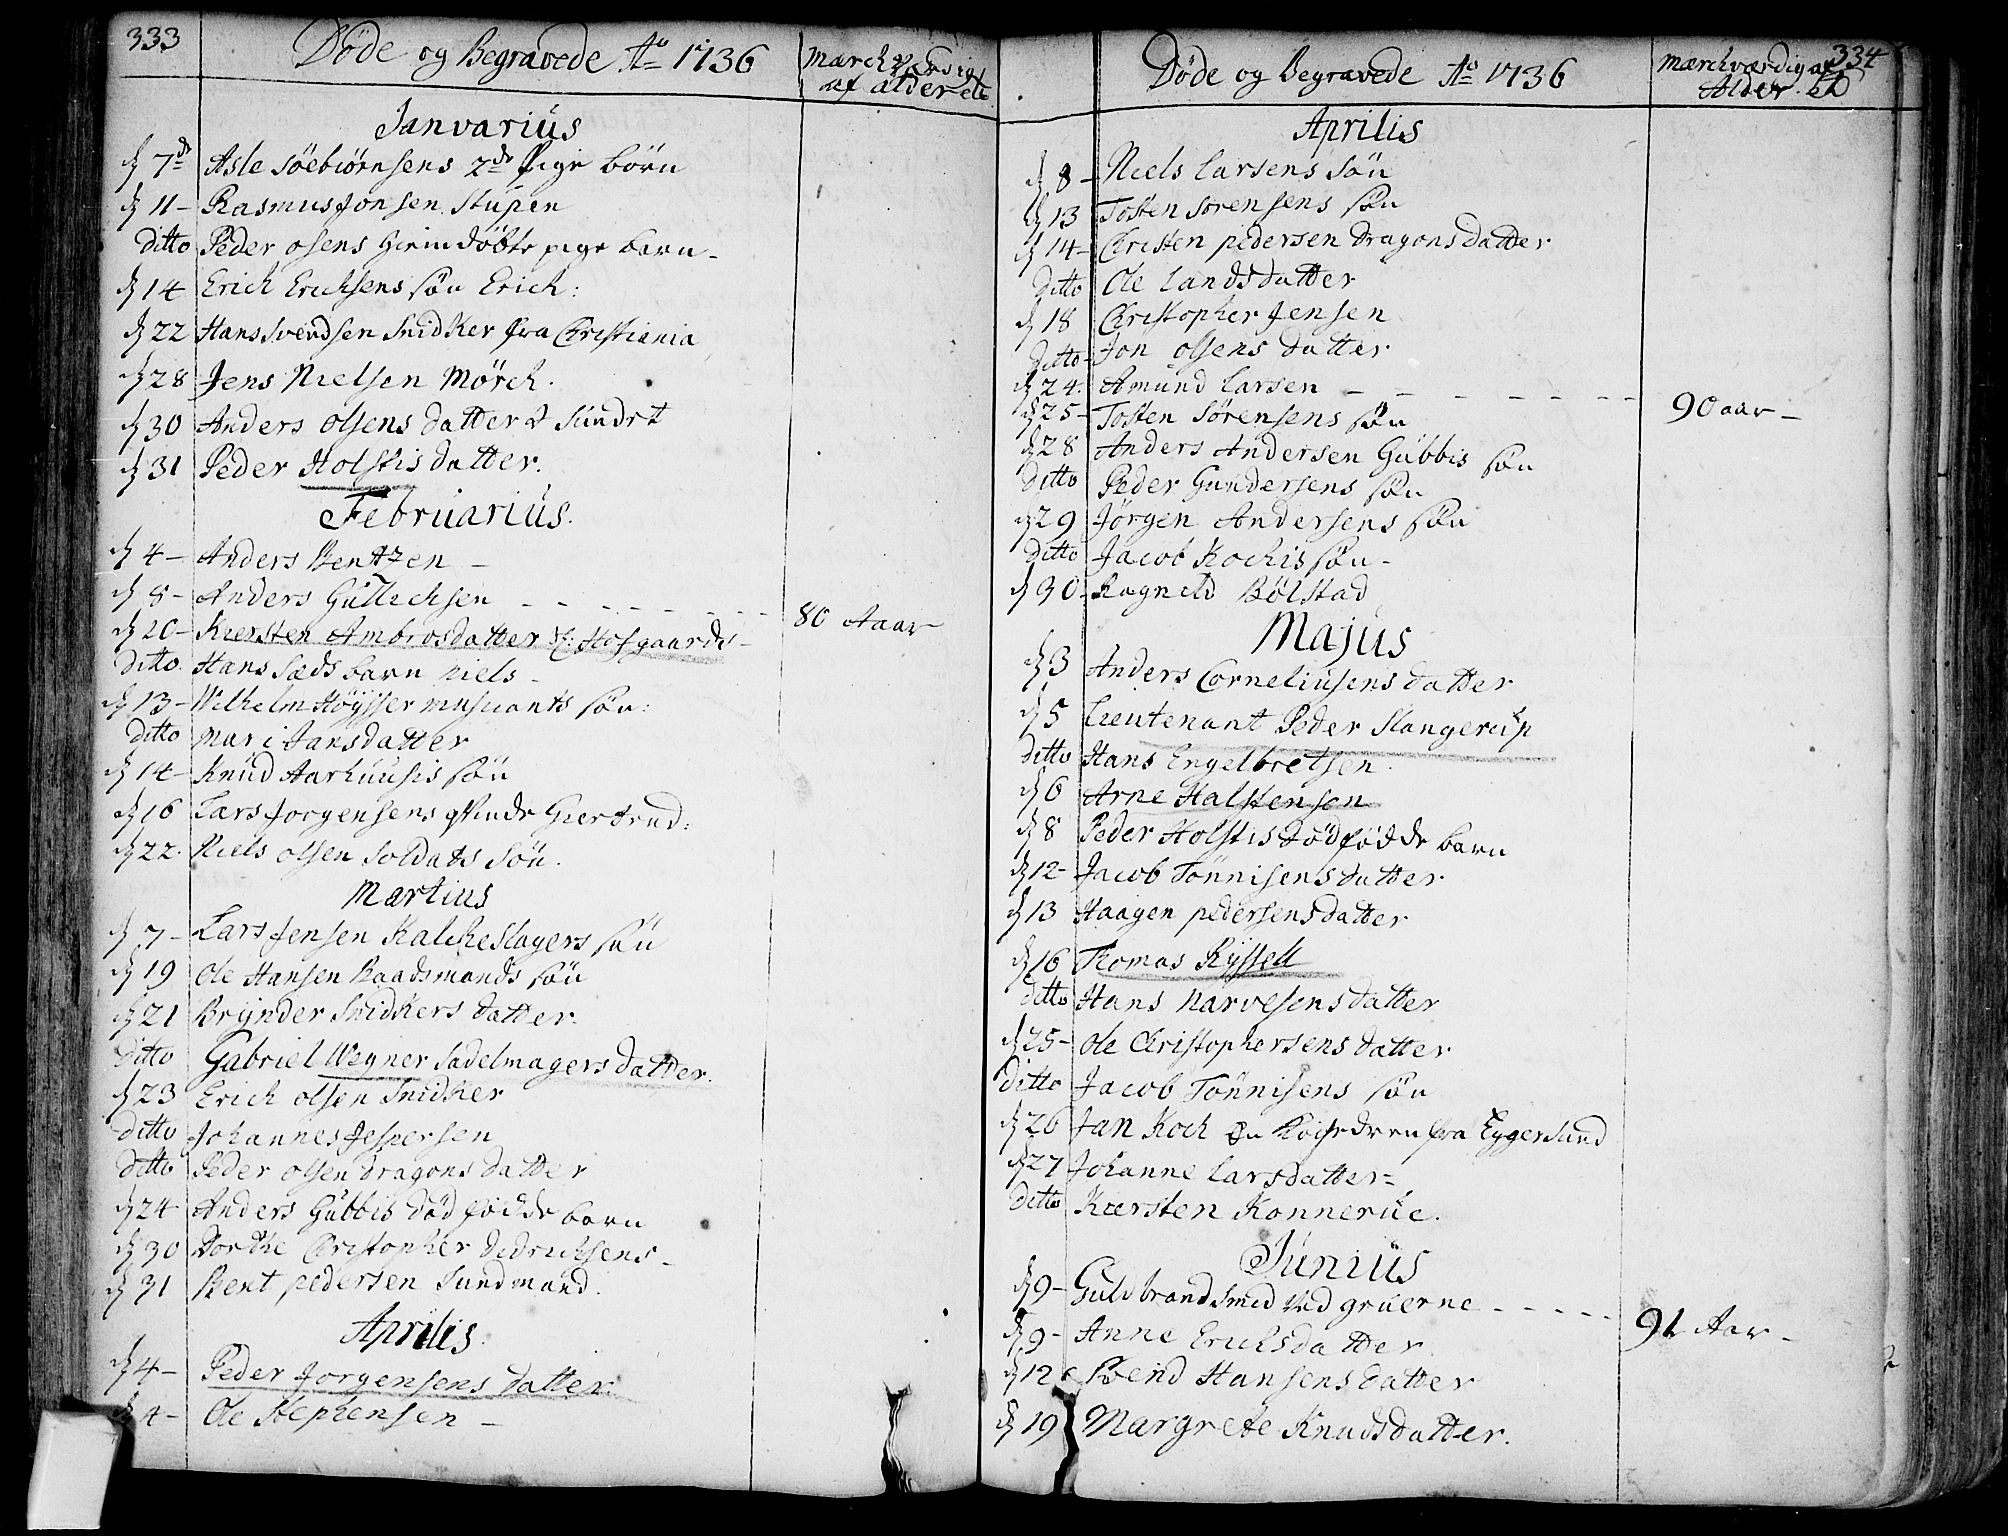 333
Döde og Begravede Ao 1736
Mærchværdig
af alder etc
Janvarius
d 7de Asle Söebiörnsens 2de Pige börn
d 11 - Rasmus Jonsen Stupen
ditto Peder Olsens hiemdöbte pige barn -
d 14 Erich Erichsens sön Erich:
d 22 Hans Svendsen Snidker fra Christiania
d 28 Jens Nielsen Mörch.
d 30 Anders Olsens datter Sundet
d 31 Peder Holstis datter.
Februarius.
d 4 - Anders Bentzen -
d 8 - Anders Gullichsen - - - - - - - - 80 Aaar
d 20 - Kiersten Ambrosdatter Hofgaards -
ditto. Hans Sæds barn niels -
d 13 - Wilhelm Höÿsser musicants sön:
ditto Mari Jansdatter
d 14 - Knud Aarhuusis sön
d 16 Lars Jörgensens qvinde Giertrud:
d 22. Niels Olsen Soldats Sön.
Martius
d 7 - Lars Jensen Kalckeslagers sön
d 19 Ole Hansen Baadsmands sön
d 21 Brÿnder Snidkers datter.
ditto Gabriel Wegner Sadelmagers datter.
d 23 Erich Olsen Snidker
ditto Johannes Jespersen
ditto Peder Olsen dragons datter
d 24 Anders Gubbis död födde barn
d 30 Dorthe Christopher Didrichsens -
d 31 Bent pedersen Sundmand.
Aprilis.
d 4 - Peder Jorgensens datter.
d 4 - Ole Stephensen -
334
Döde og Begravede Ao 1736
Mærchværdig af
Alder. etc
Aprilis
d 8 - Niels Larsens Sön
d 13 Tosten Sörensens sön
d 14 - Christen pedersen dragons datter
ditto Ole Lands datter
d 18 Christopher Jensen
ditto - Jon Olsens datter
d 24. Amund Larsen - - - - - - - 90 aar -
d 25 - Tosten Sörensens sön
d 28 Anders Andersen Gubbis sön
ditto Peder Gundersens sön
d 29 Jörgen Andersens sön
ditto Jacob Kochis sön -
d 30 - Ragnild Bölstad
Majus
d 3 Anders Corneliusens datter
d 5 Lieutenant Peder Slangerup
ditto Hans Engelbretsen.
d 6 Arne Halstensen
d 8 Peder Holstis dödfödde barn
d 12 - Jacob Tönnisens datter
d 13 Haagen pedersens datter
d 16 Thomas Ryssell
ditto Hans Narvesens datter
d 25 - Ole Christophersens datter
ditto Jacob Tönnisens sön
d 26 Jan Koch fra Eggersund
d 27 Johanne Larsdatter -
ditto Kiersten Konnerue.
Junius
d 9 - Guldbrand Smed ved gruerne - - - - - 91 Aar -
d 9 - Anne Erichsdatter.
d 12 Svend Hansens datter
d 19 Margrete Knudsdatter.